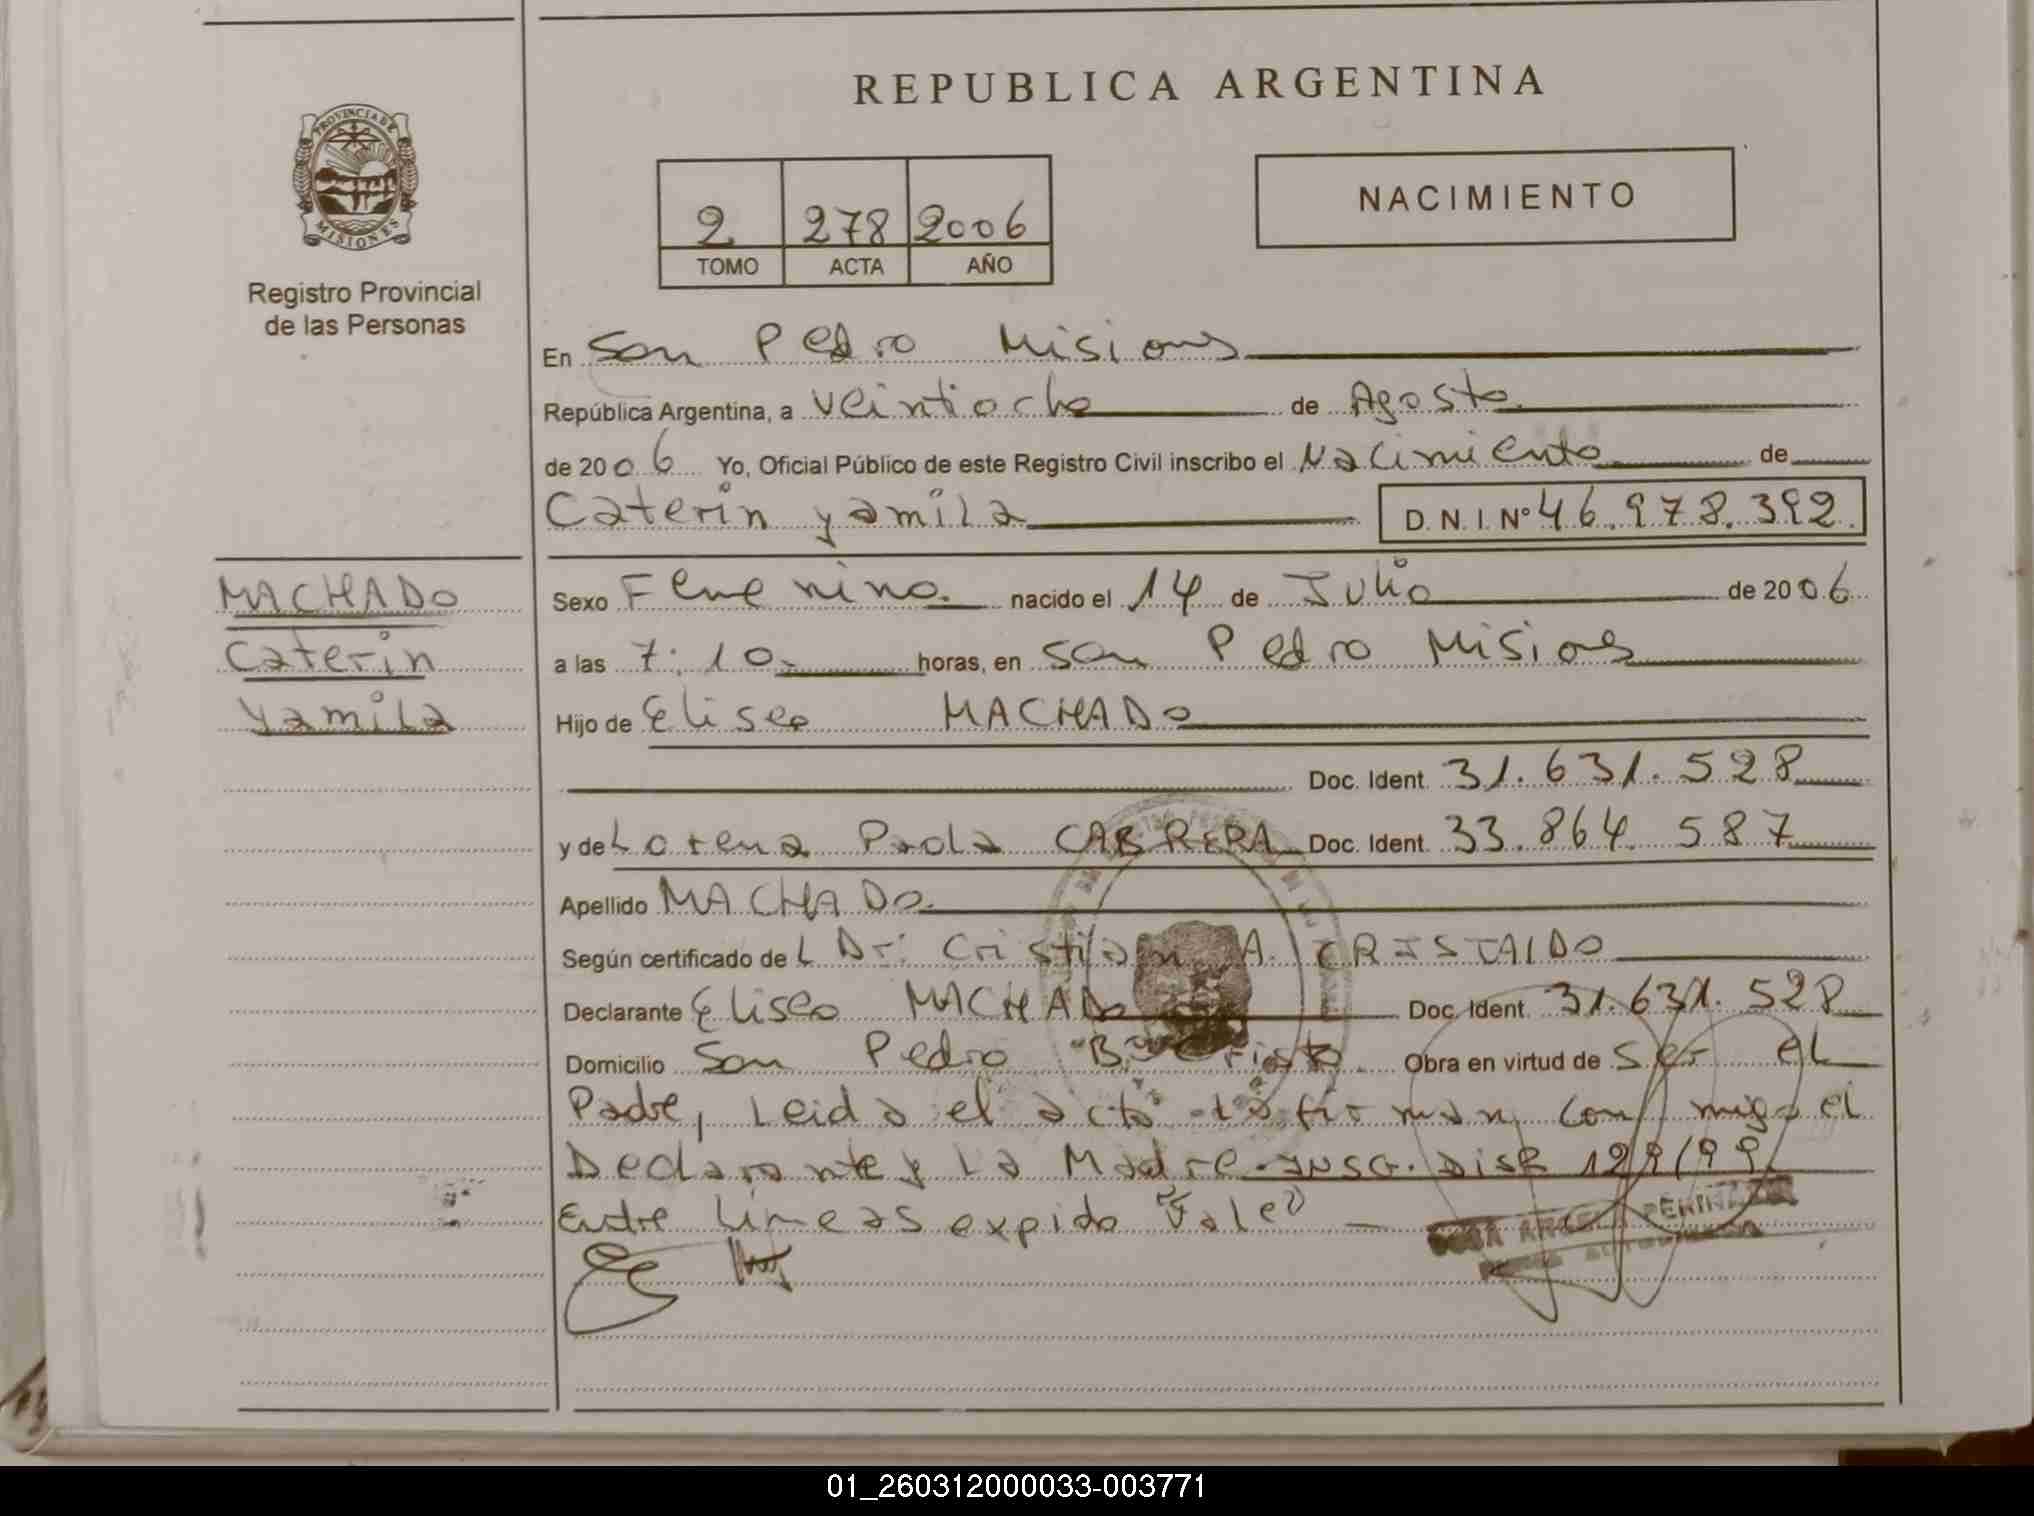 REPUBLICA ARGENTINA
PROVINCIA DE
MISIONES
Registro Provincial
de las Personas
2 278 2006
TOMO ACTA AÑO
NACIMIENTO
En San Pedro Misiones
República Argentina, a veintiocho de Agosto
de 2006 Yo, Oficial Público de este Registro Civil inscribo el Nacimiento de
Caterin yamila D. N. I. Nº 46.978.392
MACHADO
Caterin
yamila
Sexo Femenino. nacido el 14 de Julio de 2006
a las 7:10 horas, en San Pedro Misiones
Hijo de Eliseo MACHADO
Doc. Ident. 31.631.528
y de Lorena Paola CABRERA Doc. Ident. 33.864.587
Apellido MACHADO
Según certificado de L Dr. Cristian A. CRISTALDO
Declarante Eliseo MACHADO Doc. Ident. 31.631.528
Domicilio San Pedro Bº Cristo Obra en virtud de Ser el
Padre, Leida el acta la firman con migo el
Declarante y La Madre. INSC. DISP 129/99
Entre Lineas expido "Vale"
01_260312000033-003771